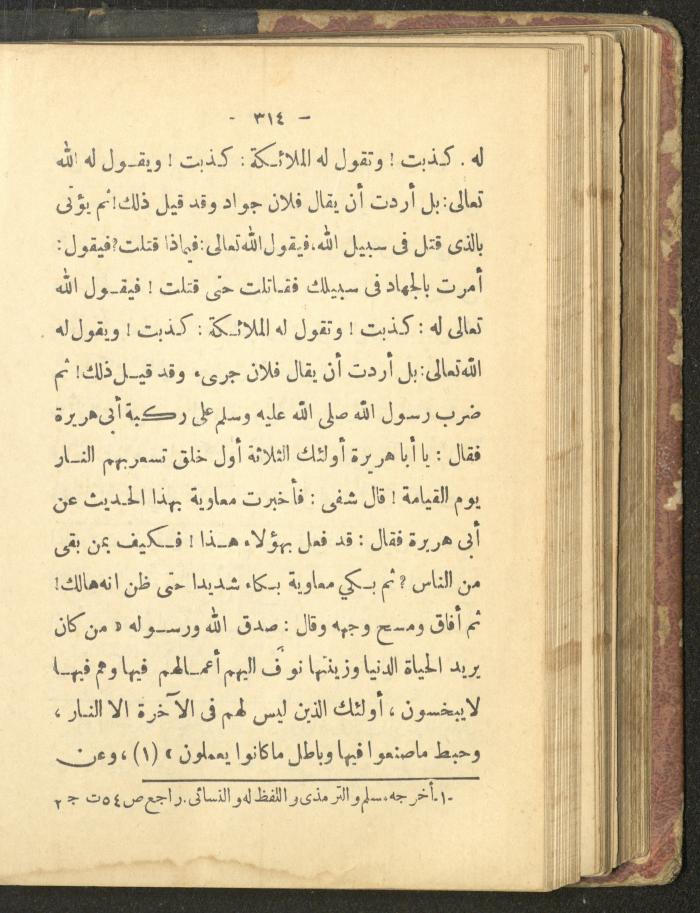 - ٣١٤ -
له . كذبت ! وتقول له الملائكة : كذبت ! ويقول له الله
تعالى : بل أردت أن يقال فلان جواد وقد قيل ذلك ! ثم يؤتى
بالذى قتل فى سبيل الله ، فيقول الله تعالى : فيماذا قتلت ? فيقول :
أمرت بالجهاد فى سبيلك فقاتلت حتى قتلت ! فيقول الله
تعالى له : كذبت ! وتقول له الملائكة : كذبت ! ويقول له
الله تعالى : بل أردت أن يقال فلان جرىء وقد قيل ذلك ! ثم
ضرب رسول الله صلى الله عليه وسلم على ركبة أبى هريرة
فقال : يا أبا هريرة أولئك الثلاثة أول خلق تسعر بهم النار
يوم القيامة ! قال شفى : فأخبرت معاوية بهذا الحديث عن
أبى هريرة فقال : قد فعل بهؤلاء هذا ! فكيف بمن بقى
من الناس ? ثم بكي معاوية بكاء شديدا حتى ظن انه هالك !
ثم أفاق ومسح وجهه وقال : صدق الله ورسوله « من كان
يريد الحياة الدنيا وزينتها نوفّ اليهم أعمالهم فيها وهم فيها
لا يبخسون ، أولئك الذين ليس لهم فى الآخرة الا النار ،
وحبط ماصنعوا فيها وباطل ماكانوا يعملون » (١) ، وعن
-١- أخرجه مسلم والترمذى واللفظ له والنسائى . راجع ص ٥٤ ت ج ٢